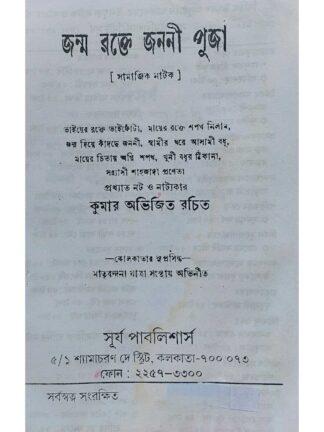 জন্ম রক্তে জননী পূজা
[ সামাজিক নাটক ]
ভাইয়ের রক্তে ভাইফোঁটা, মায়ের রক্তে শপথ নিলাম,
জন্ম দিয়ে কাঁদছে জননী, স্বামীর ঘরে আসামী বধূ,
মায়ের চিতায় অগ্নি শপথ, খুনী বধূর ঠিকানা,
সন্ন্যাসী শাহজাদা প্রণেতা
প্রখ্যাত নট ও নাট্যকার
কুমার অভিজিত রচিত
—কোলকাতার সুপ্রসিদ্ধ—
মাতৃবন্দনা যাত্রা সংস্থায় অভিনীত
সূর্য পাবলিশার্স
৫/১ শ্যামাচরণ দে স্ট্রিট, কলকাতা-৭০০ ০৭৩
ফোন : ২২৫৭-৩৩০০
সর্বস্বত্ব সংরক্ষিত